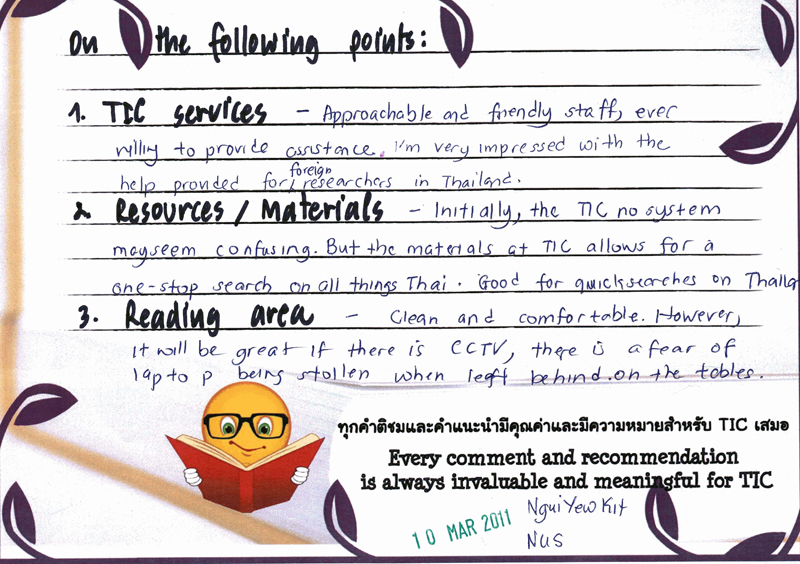 On the following points:
1. TIC services - Approachable and friendly staff, ever
willing to provide assistance. I'm very impressed with the
help provided for foreign researchers in Thailand.
2. Resources / Materials - Initially, the TIC no system
mayseem confusing. But the materials at TIC allows for a
one-stop search on all things Thai. Good for quick searches on Thaila
3. Reading area - Clean and comfortable. However,
it will be great if there is CCTV, there is a fear of
laptop being stollen when left behind on the tables.
ทุกคำติชมและคำแนะนำมีคุณค่าและมีความหมายสำหรับ TIC เสมอ
Every comment and recommendation
is always invaluable and meaningful for TIC
10 MAR 2011
Ngui Yew Kit
NUS